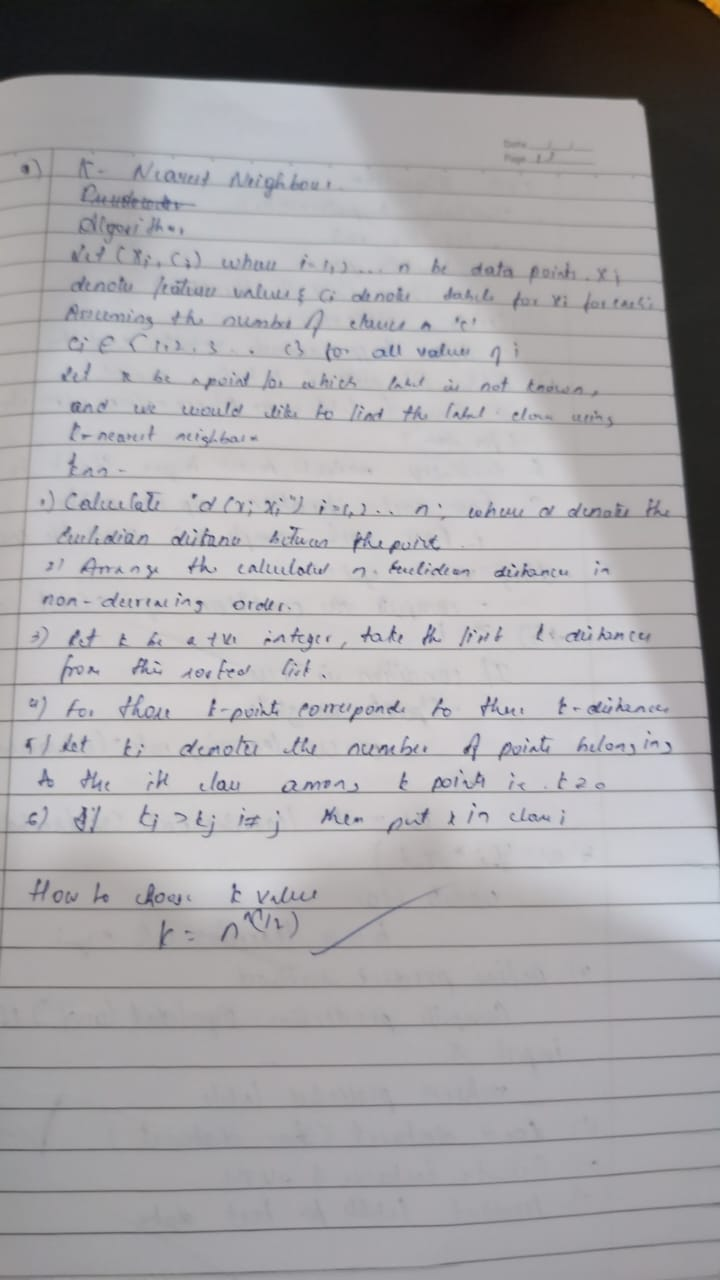 Date / /
Page
9) K- Nearest Neighbour.
Algorithm
Let (Xi, Ci) where i=1,2.... n be data points. xi
denote feature values & Ci denote labels for xi for each i
Assuming the number of classes as 'c'
Ci ∈ {1,2,3... c} for all values of i
Let x be a point for which label is not known,
and we would like to find the label class using
k-nearest neighbors
knn-
1) Calculate "d(x, xi") i=1,2.. n; where d denote the
Euclidian distance between the point.
2) Arrange the calculated n. Euclidean distances in
non-decreasing order.
3) Let k be a +ve integer, take the first k distances
from this sorted list.
4) For those k-points corresponds to these k-distances
5) Let ki denotes the number of points belonging
to the ith class among k points ie. k≥0
6) If ki >kj i≠j then put x in class i
How to choose k value
k = n^(1/2)